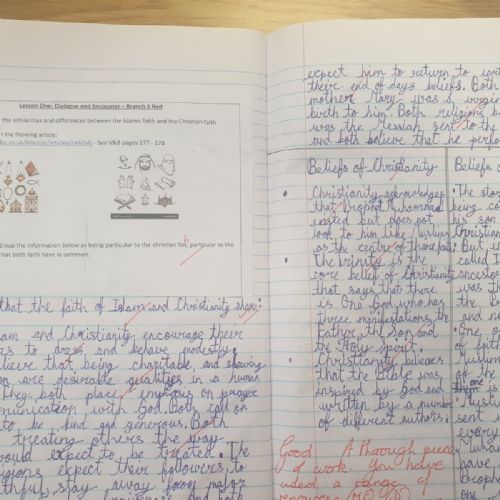 Lesson One: Dialogue and Encounter – Branch 6 Red
the similarities and differences between the Islamic faith and the Christian faith
the following article:
- See V&B pages 177 - 178
group the information below as being particular to the christian fait, particular to the
hat both faith have in common.
h
that the faith of Islam and Christianity share:
am and Christianity encourage their
rs to dress and behave modestly
lieve that being charitable and showing
on are desirable qualities in a human
They both place emphasis on prayer
munication with God. Both call on
to be kind and generous. Both
treating others the way
would expect to be treated. The
igions expect their followers to
faithful, stay away from major
and both
expect him to return to earth
their end of days beliefs. Both
mother Mary was a virgin
birth to him. Both religions b
was the Messiah sent to the
and both believe that he perfo
Beliefs of Christianity
• Christianity acknowledges
that Prophet Muhammad
existed but does not
look to him like Muslims
as the centre of their faith.
• The trinity is the
core belief of Christianity
that says that there
is One God who has
three manifestations, the
Father, the Son and
the Holy Spirit.
• Christianity believes
that the Bible was
inspired by God and
written by a number
of different authors.
Beliefs o
• The stor
being co
his son
Christian
• But I
called I
ancestor
was th
the
and n
• One
of faith
Muslim
of the
• Musli
sent
every
Muham
gave
Good. A thorough piece
of work. You have
used a range of